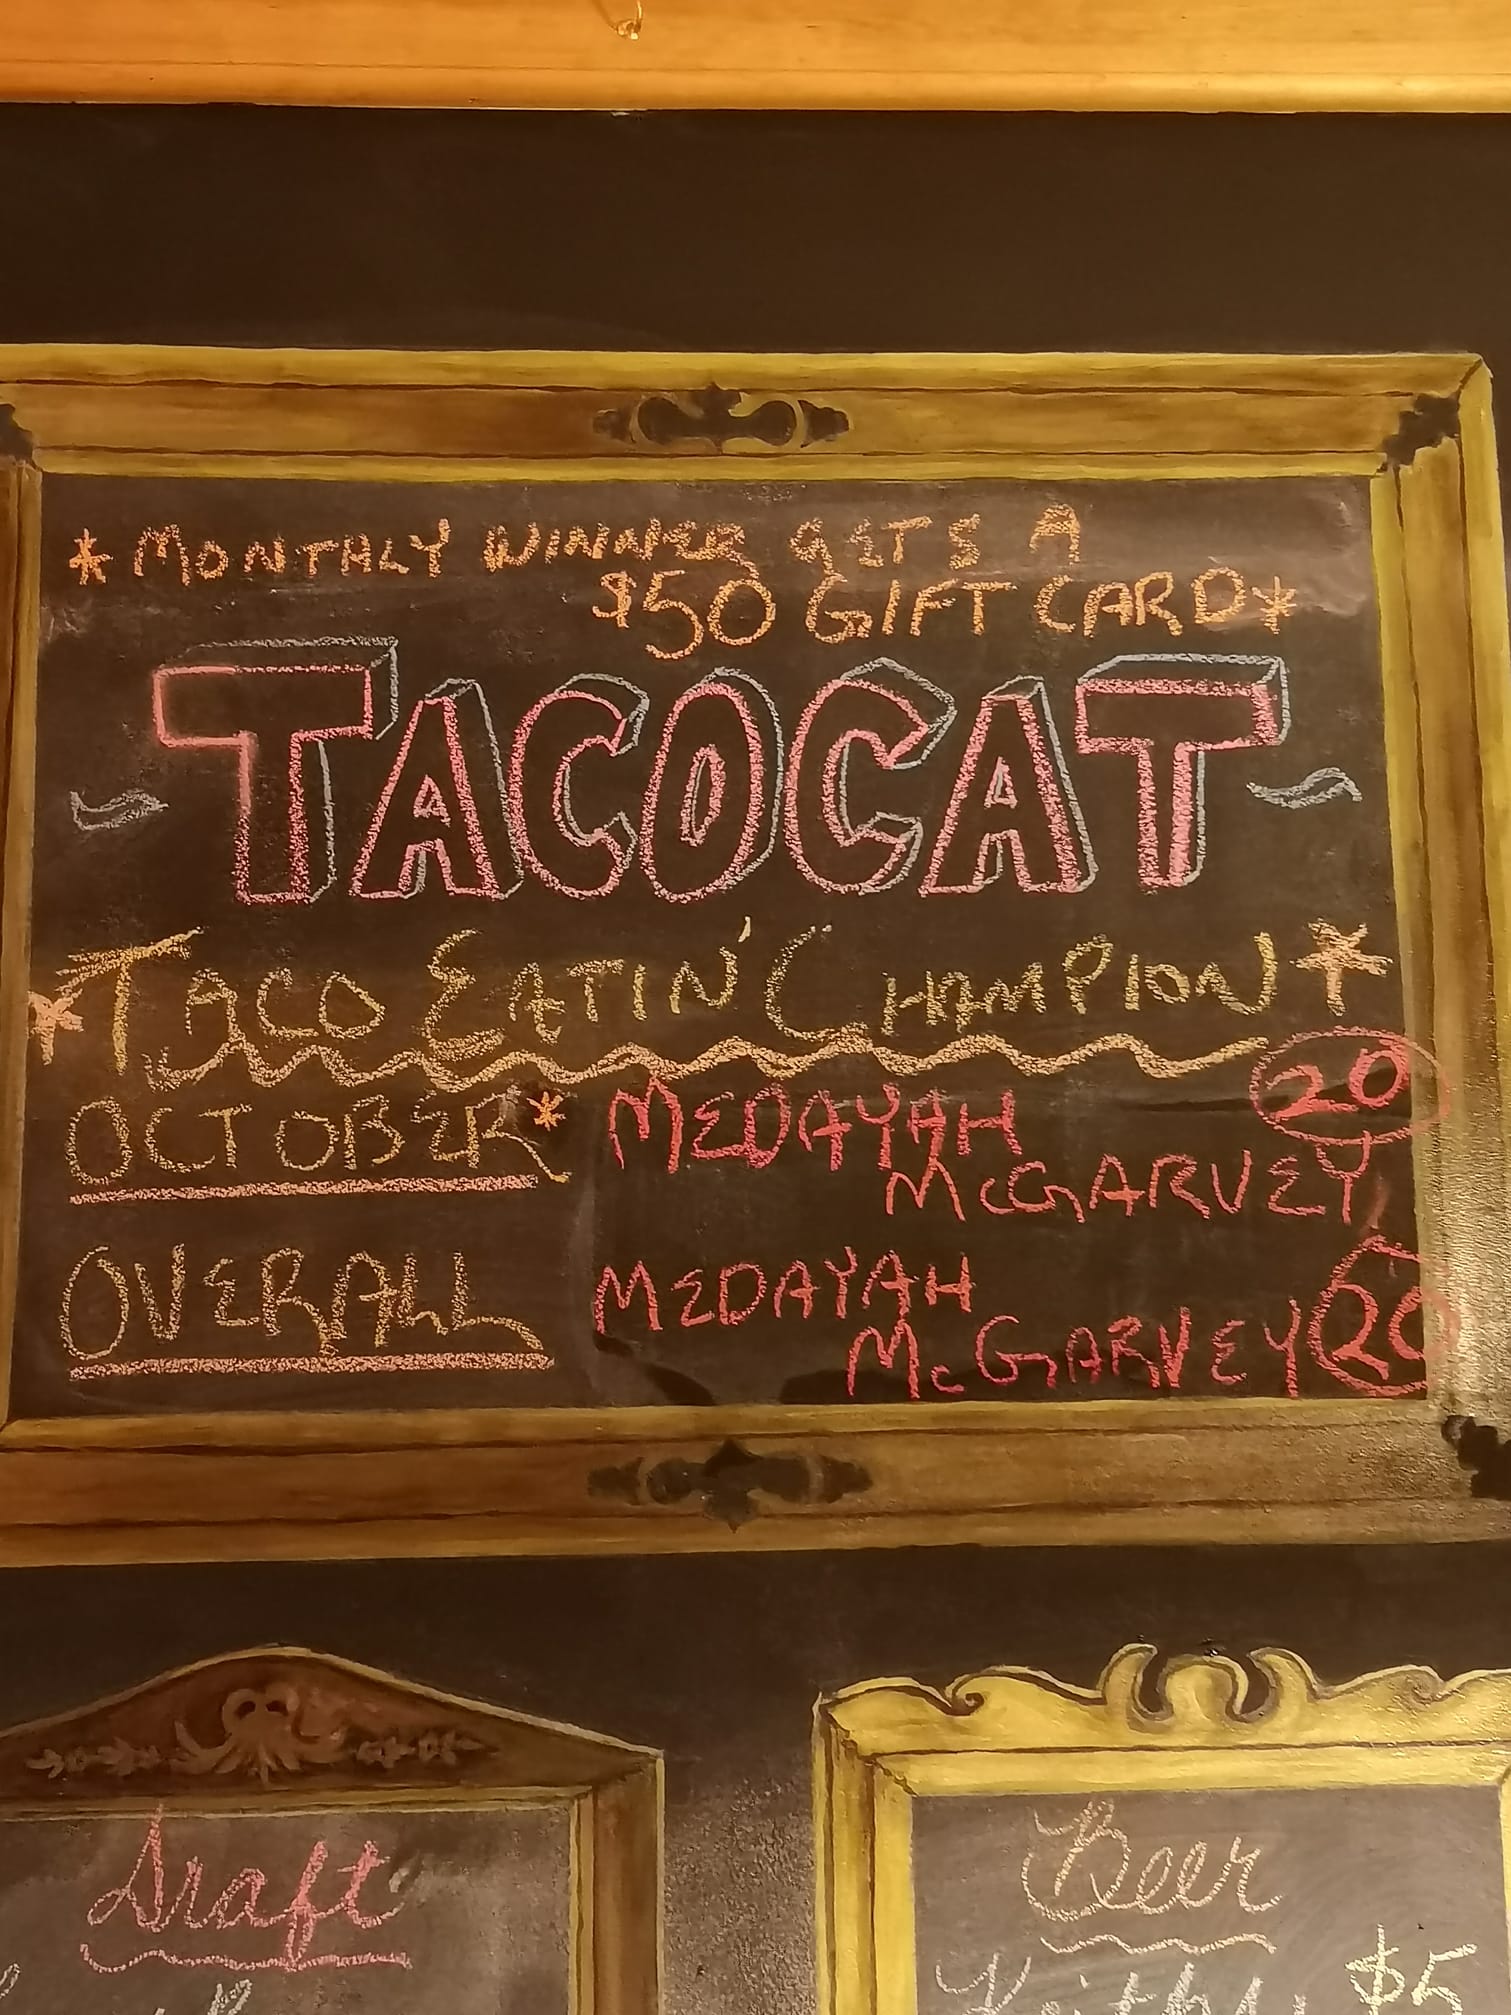 *MONTHLY WINNER GETS A
$50 GIFT CARD*
~TACOCAT~
*TACO EATIN' CHAMPION*
OCTOBER* MEDAYAH 20
McGARVEY
OVERALL MEDAYAH
McGARVEY 20
Draft
Beer
$5